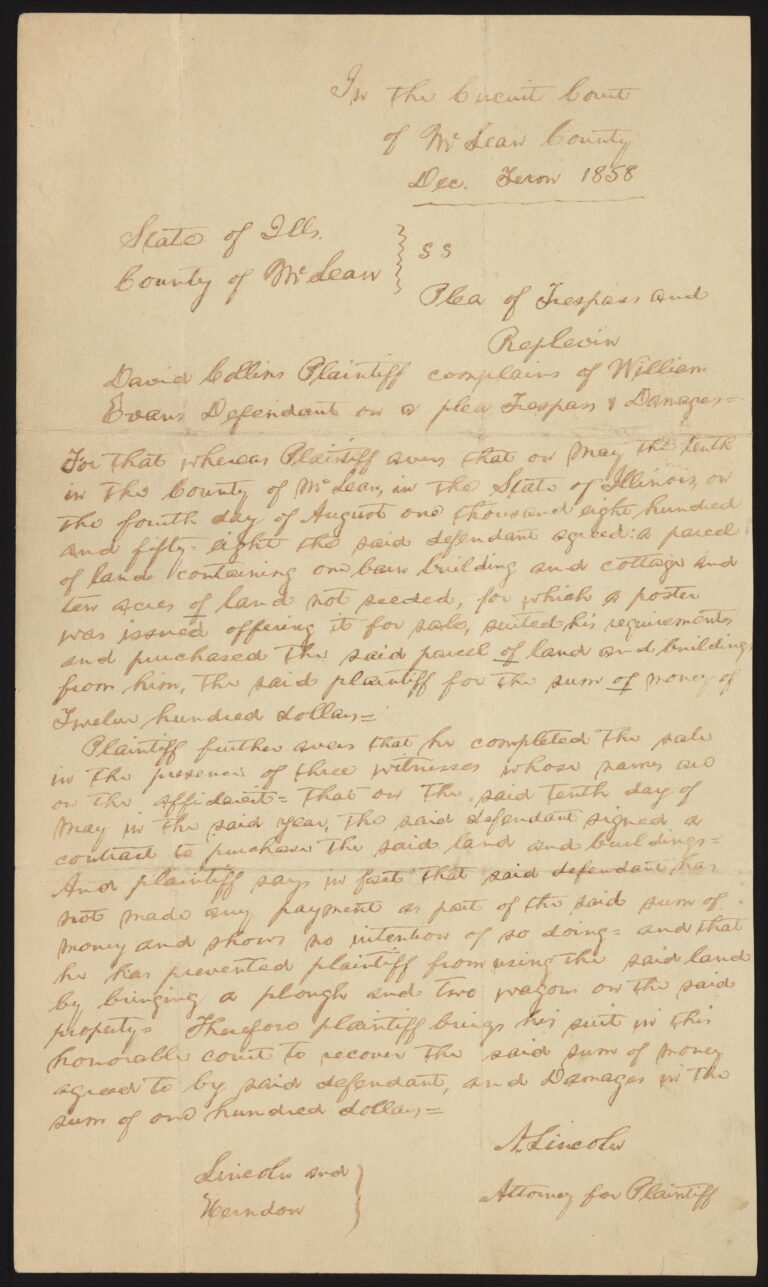 In the Circuit Court
of Mc Lean County
Dec. Term 1858
State of Ills.
County of Mc Lean
SS
Plea of Trespass and
Replevin
David Collins Plaintiff complains of William
Evans Defendant on a plea Trespass & Damages=
For that whereas Plaintiff avers that on May the tenth
in the County of Mc Lean, in the State of Illinois, on
the fourth day of August one thousand eight hundred
and fifty-eight the said defendant agreed: a parcel
of land containing one barn building and cottage and
ten acres of land not seeded, for which a poster
was issued offering it for sale, suited his requirements
and purchased the said parcel of land and buildings
from him, the said plaintiff for the sum of money of
Twelve hundred dollars=
Plaintiff further avers that he completed the sale
in the presence of three witnesses whose names are
on the affidavit= that on the said tenth day of
May in the said year, the said defendant signed a
contract to purchase the said land and buildings=
And plaintiff says in fact that said defendant has
not made any payment as part of the said sum of
money and shows no intention of so doing= and that
he has prevented plaintiff from using the said land
by bringing a plough and two wagons on the said
property= Therefore plaintiff brings his suit in this
honorable court to recover the said sum of money
agreed to by said defendant, and Damages in the
sum of one hundred dollars=
A. Lincoln
Lincoln and
Herndon
Attorney for Plaintiff